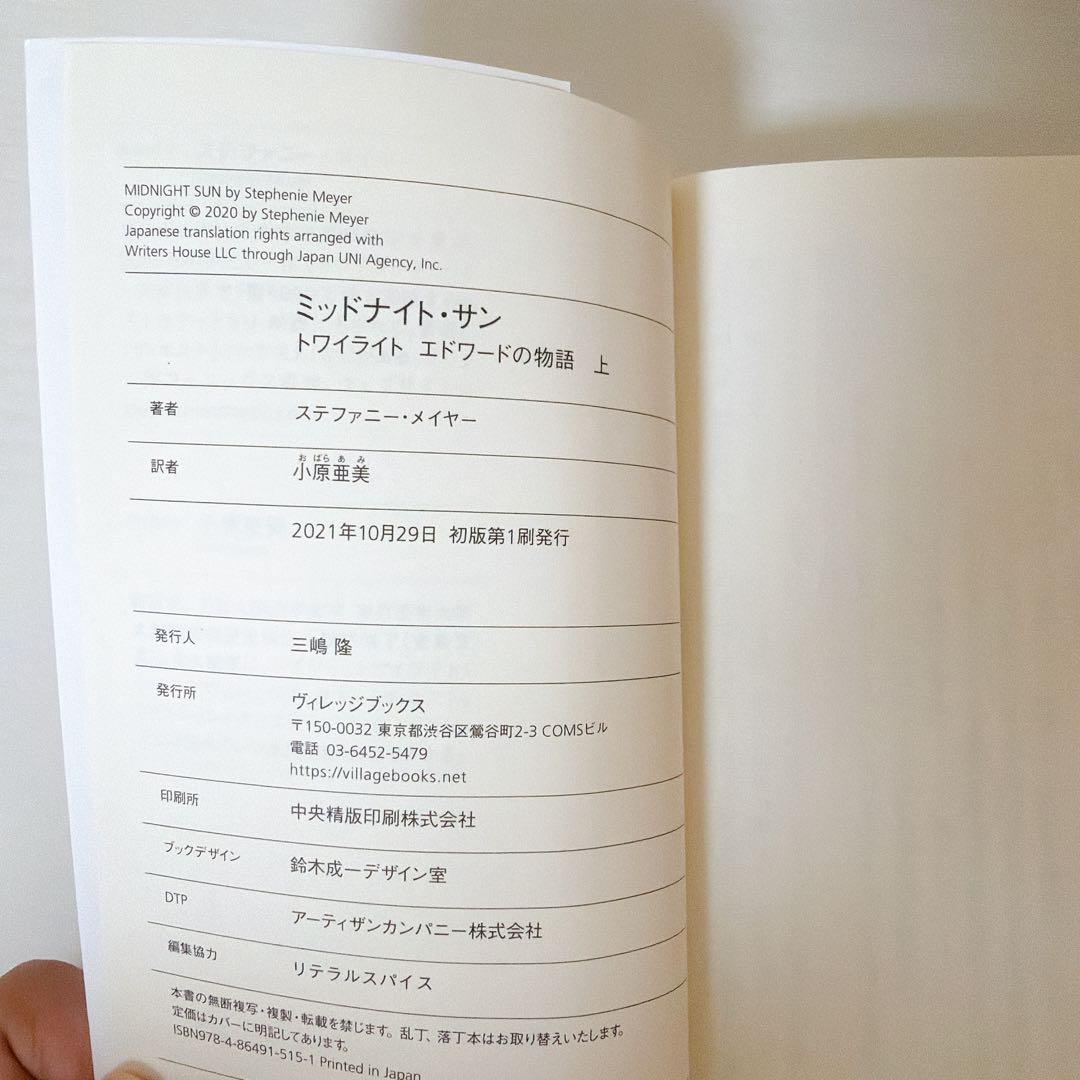 MIDNIGHT SUN by Stephenie Meyer
Copyright © 2020 by Stephenie Meyer
Japanese translation rights arranged with
Writers House LLC through Japan UNI Agency, Inc.
ミッドナイト・サン
トワイライト エドワードの物語 上
著者 ステファニー・メイヤー
おばらあみ
訳者 小原亜美
2021年10月29日 初版第1刷発行
発行人 三嶋 隆
発行所 ヴィレッジブックス
〒150-0032 東京都渋谷区鶯谷町2-3 COMSビル
電話 03-6452-5479
https://villagebooks.net
印刷所 中央精版印刷株式会社
ブックデザイン 鈴木成一デザイン室
DTP アーティザンカンパニー株式会社
編集協力 リテラルスパイス
本書の無断複写・複製・転載を禁じます。乱丁、落丁本はお取り替えいたします。
定価はカバーに明記してあります。
ISBN978-4-86491-515-1 Printed in Japan